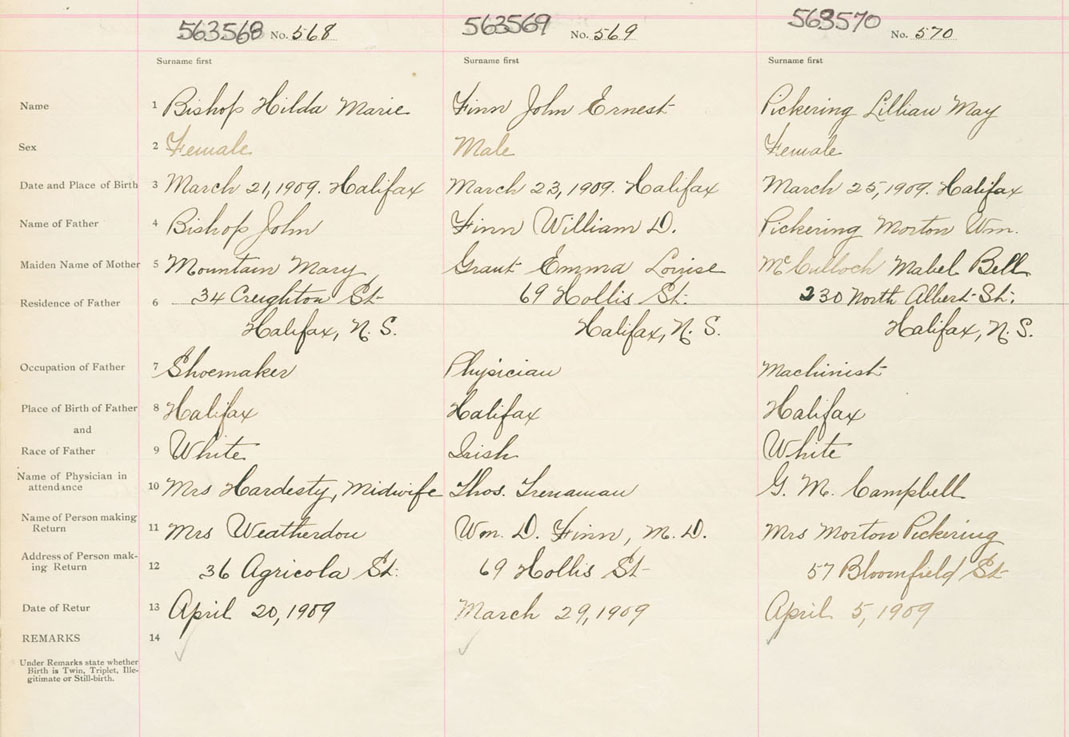 563568 No. 568 563569 No. 569 563570 No. 570
Surname first Surname first Surname first
Name 1 Bishop Hilda Marie Finn John Ernest Pickering Lillian May
Sex 2 Female Male Female
Date and Place of Birth 3 March 21, 1909. Halifax March 23, 1909. Halifax March 25, 1909. Halifax
Name of Father 4 Bishop John Finn William D. Pickering Morton Wm.
Maiden Name of Mother 5 Mountain Mary Grant Emma Louise McCulloch Mabel Bell
Residence of Father 6 34 Creighton St 69 Hollis St. 230 North Albert St.
Halifax, N.S. Halifax, N.S. Halifax, N.S.
Occupation of Father 7 Shoemaker Physician Machinist
Place of Birth of Father 8 Halifax Halifax Halifax
and
Race of Father 9 White Irish White
Name of Physician in
attendance 10 Mrs Hardesty, Midwife Thos. Trenaman G. M. Campbell
Name of Person making
Return 11 Mrs Weatherdon Wm. D. Finn, M.D. Mrs Morton Pickering
Address of Person mak-
ing Return 12 36 Agricola St. 69 Hollis St 57 Bloomfield St
Date of Retur 13 April 20, 1909 March 29, 1909 April 5, 1909
REMARKS 14
Under Remarks state whether
Birth is Twin, Triplet, Ille-
gitimate or Still-birth.